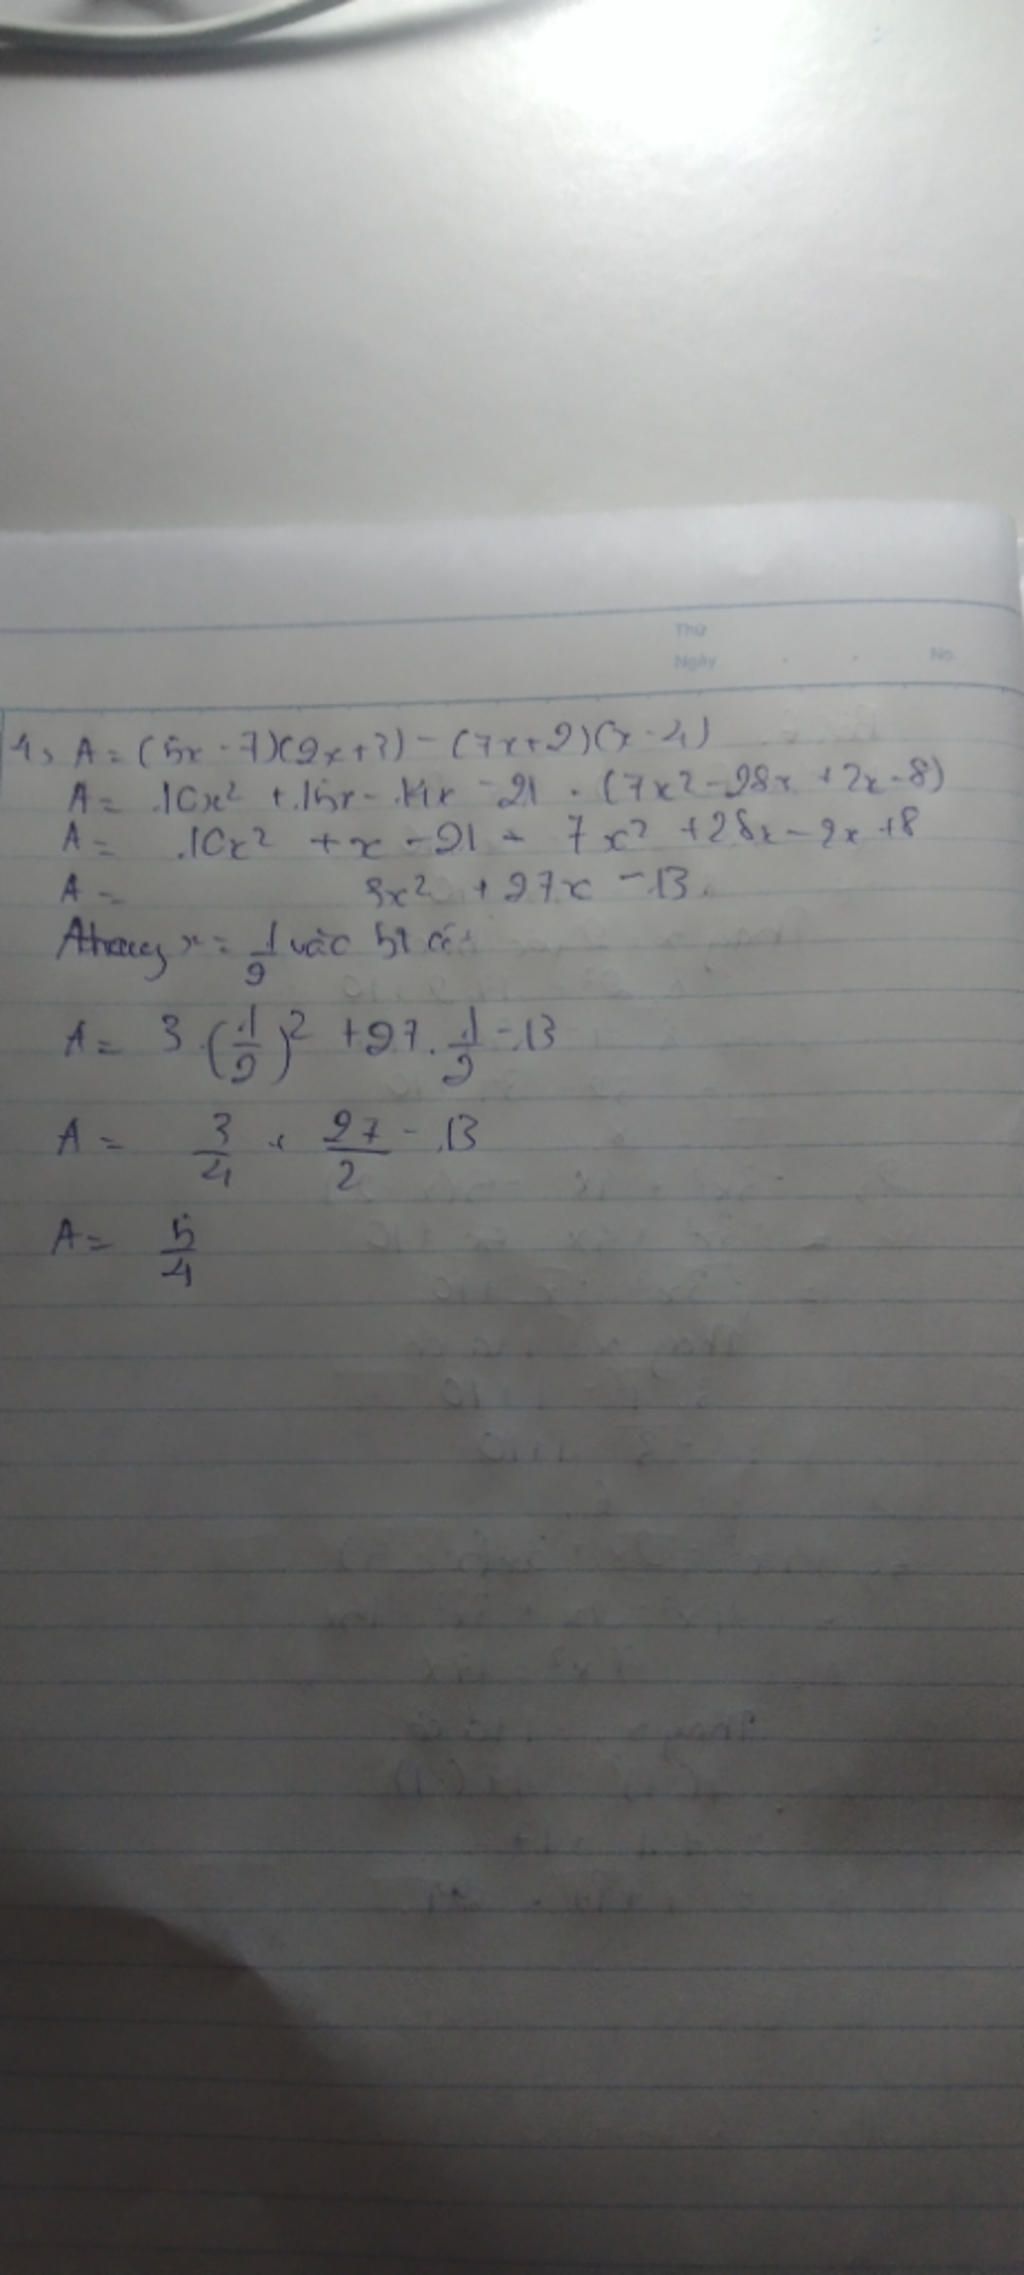 Thứ
Ngày No.
4, A = (5x - 7)(2x + 3) - (7x + 2)(x - 4)
A = 10x² + 15x - 14x - 21 - (7x² - 28x + 2x - 8)
A = 10x² + x - 21 - 7x² + 28x - 2x + 8
A = 3x² + 27x - 13
Thay x = 1/2 vào bt có:
A = 3 . (1/2)² + 27 . 1/2 - 13
A = 3/4 + 27/2 - 13
A = 5/4